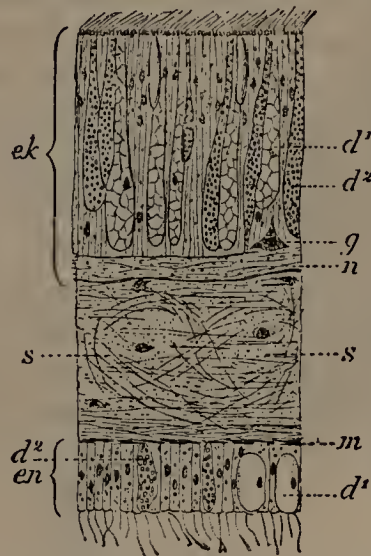 ek
d¹
d²
g
n
s
s
m
d²
en
d¹